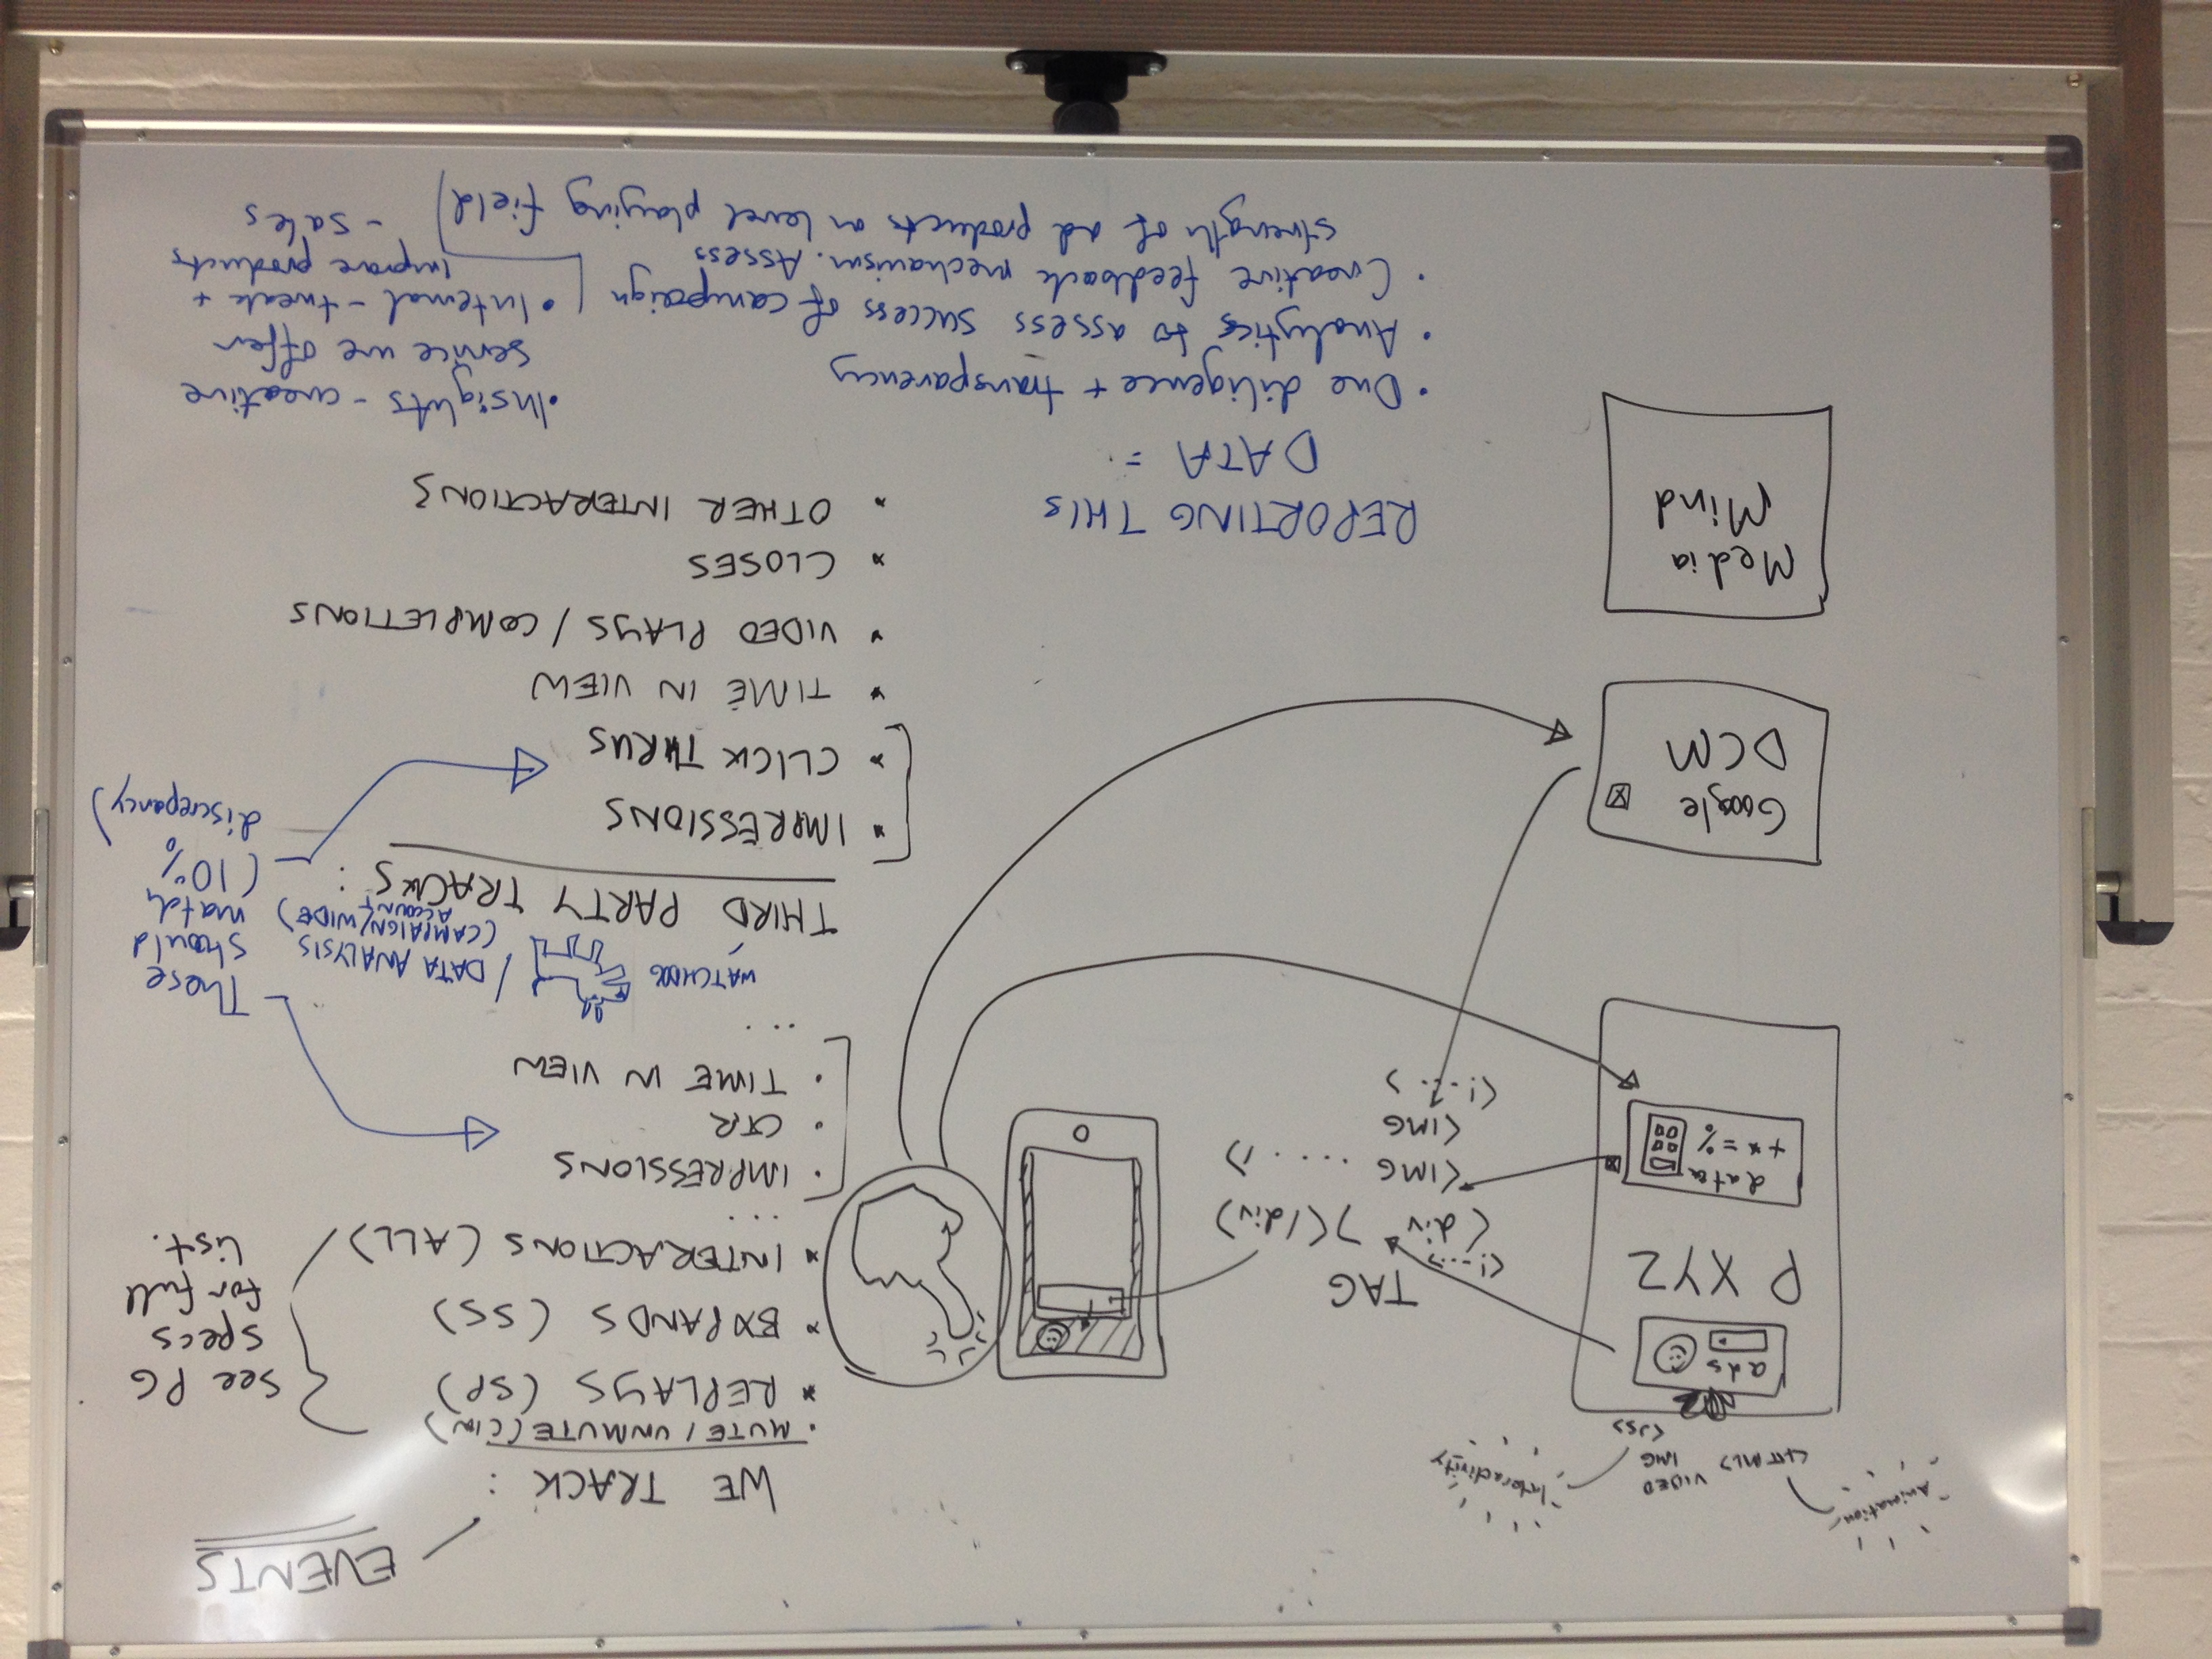 EVENTS
Animation
<HTML>
VIDEO
IMG
<JS>
Interactivity
ads
P XYZ
data
+ * = %
TAG
<!--->
<div ></div>
<IMG .... />
<IMG
<!--->
Google
DCM
Media
Mind
WE TRACK :
• MUTE / UNMUTE (CIN)
* REPLAYS (SP)
* EXPANDS (SS)
* INTERACTIONS (ALL)
...
See PG
specs
for full
list.
• IMPRESSIONS
• CTR
• TIME IN VIEW
...
WATCHDOG / DATA ANALYSIS
(CAMPAIGN/WIDE)
ACCOUNT
These
should
match
(10%
discrepancy)
THIRD PARTY TRACKS :
* IMPRESSIONS
* CLICK THRUS
* TIME IN VIEW
* VIDEO PLAYS / COMPLETIONS
* CLOSES
* OTHER INTERACTIONS
REPORTING THIS
DATA =
• Due diligence + transparency
• Analytics to assess success of campaign
• Creative feedback mechanism. Assess
strength of ad products on level playing field
• Insights - creative
service we offer
• Internal - tweak +
improve products
- sales